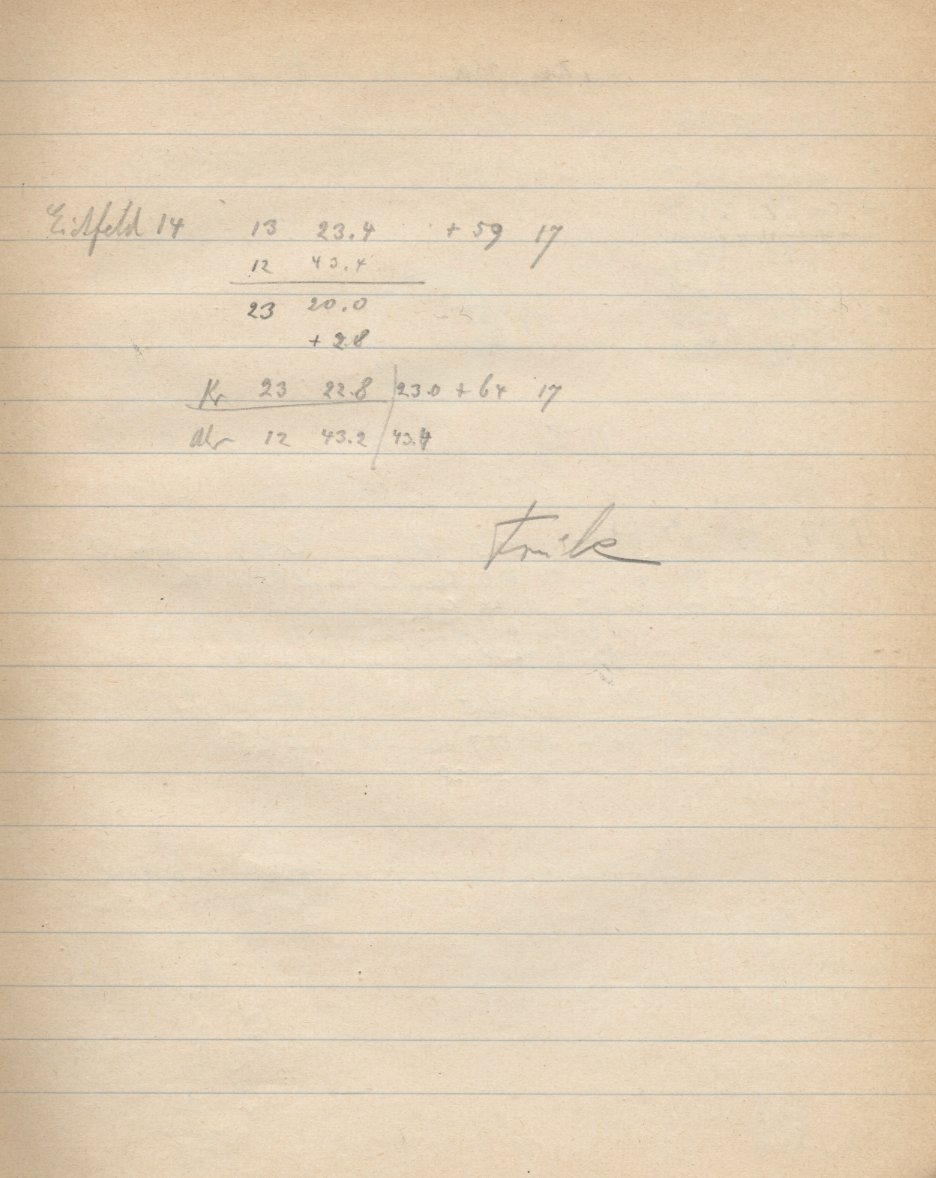 Eichfeld 14 13 23.4 + 59 17
12 43.4
23 20.0
+ 2.8
Kr 23 22.8 23.0 + 64 17
12 43.2 43.4